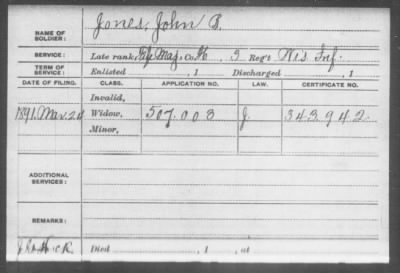 NAME OF SOLDIER: Jones, John P.
SERVICE: Late rank, Maj. Co. 3 Reg't Wis Inf.
TERM OF SERVICE: Enlisted , 1 Discharged , 1
DATE OF FILING. CLASS. APPLICATION NO. LAW. CERTIFICATE NO.
Invalid,
1891 Mar. 24 Widow, 507.003 J. 343.942.
Minor,
ADDITIONAL SERVICES:
REMARKS:
Died , 1 , at